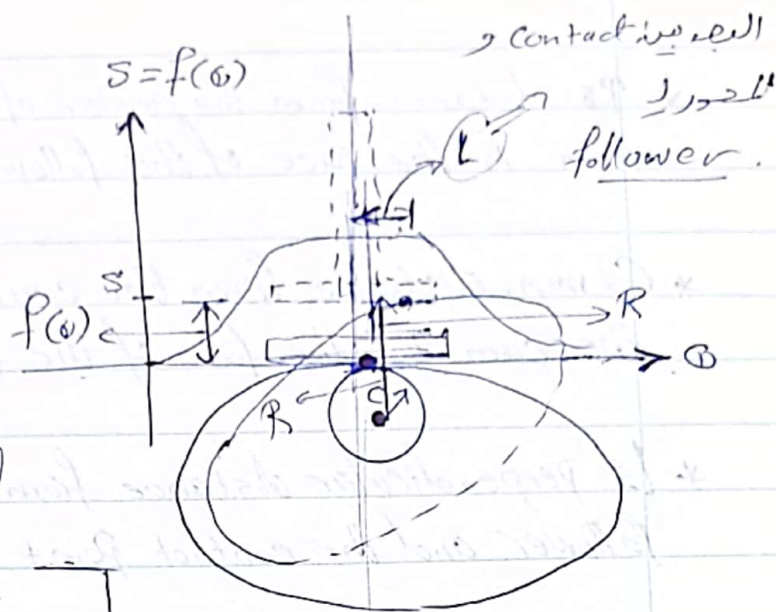 البعد بين contact و
المحور لـ
follower.
L
S = f(θ)
S
f(θ)
R
θ
R
C